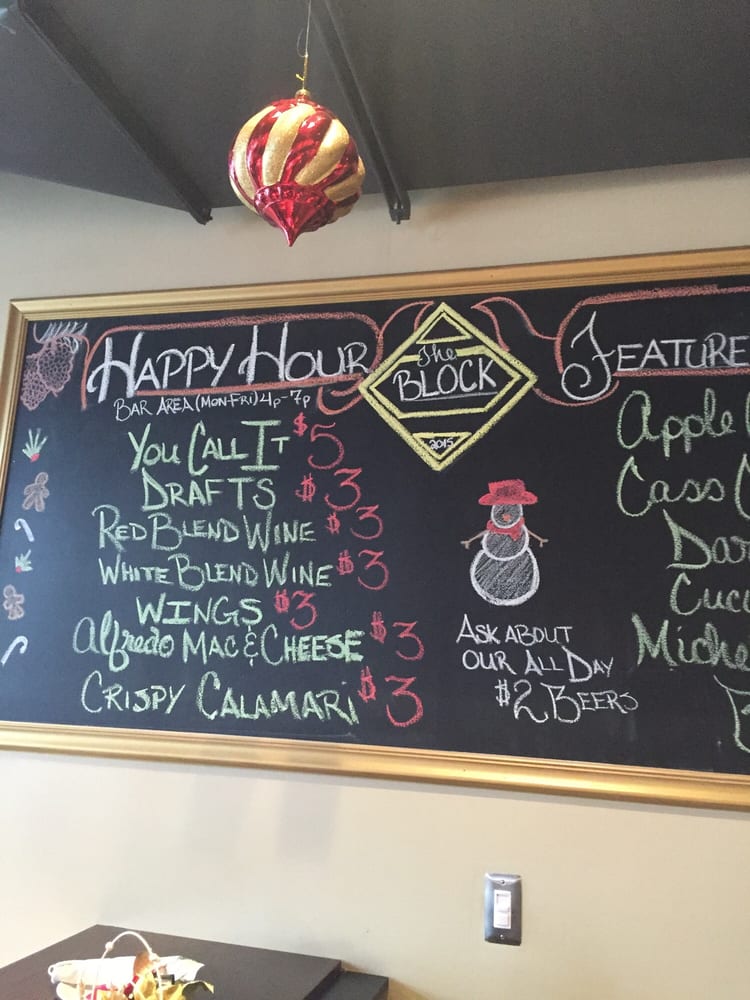 Happy Hour
Bar Area (Mon-Fri) 4p-7p
You Call It $5
Drafts $3
Red Blend Wine $3
White Blend Wine $3
Wings $3
Alfredo Mac & Cheese $3
Crispy Calamari $3
The
Block
2015
Ask about
our All Day
$2 Beers
Feature
Apple
Cass